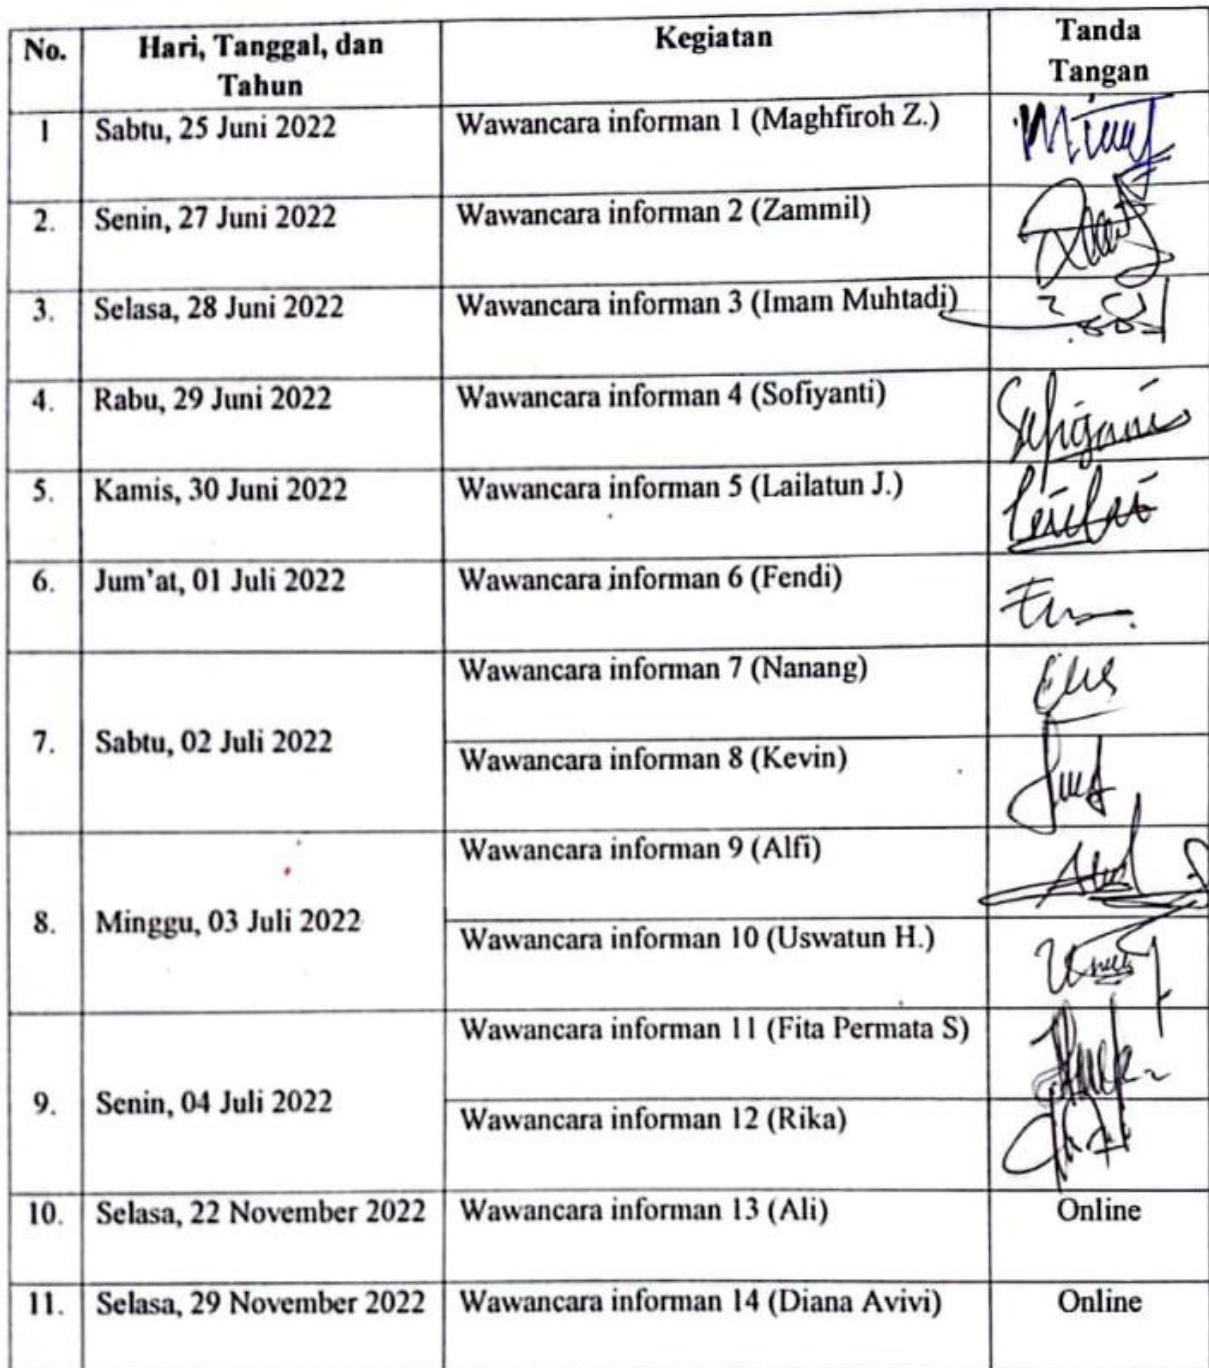 No. Hari, Tanggal, dan Tahun Kegiatan Tanda Tangan
1 Sabtu, 25 Juni 2022 Wawancara informan 1 (Maghfiroh Z.)
2. Senin, 27 Juni 2022 Wawancara informan 2 (Zammil)
3. Selasa, 28 Juni 2022 Wawancara informan 3 (Imam Muhtadi)
4. Rabu, 29 Juni 2022 Wawancara informan 4 (Sofiyanti)
5. Kamis, 30 Juni 2022 Wawancara informan 5 (Lailatun J.)
6. Jum'at, 01 Juli 2022 Wawancara informan 6 (Fendi)
7. Sabtu, 02 Juli 2022 Wawancara informan 7 (Nanang)
Wawancara informan 8 (Kevin)
8. Minggu, 03 Juli 2022 Wawancara informan 9 (Alfi)
Wawancara informan 10 (Uswatun H.)
9. Senin, 04 Juli 2022 Wawancara informan 11 (Fita Permata S)
Wawancara informan 12 (Rika)
10. Selasa, 22 November 2022 Wawancara informan 13 (Ali) Online
11. Selasa, 29 November 2022 Wawancara informan 14 (Diana Avivi) Online